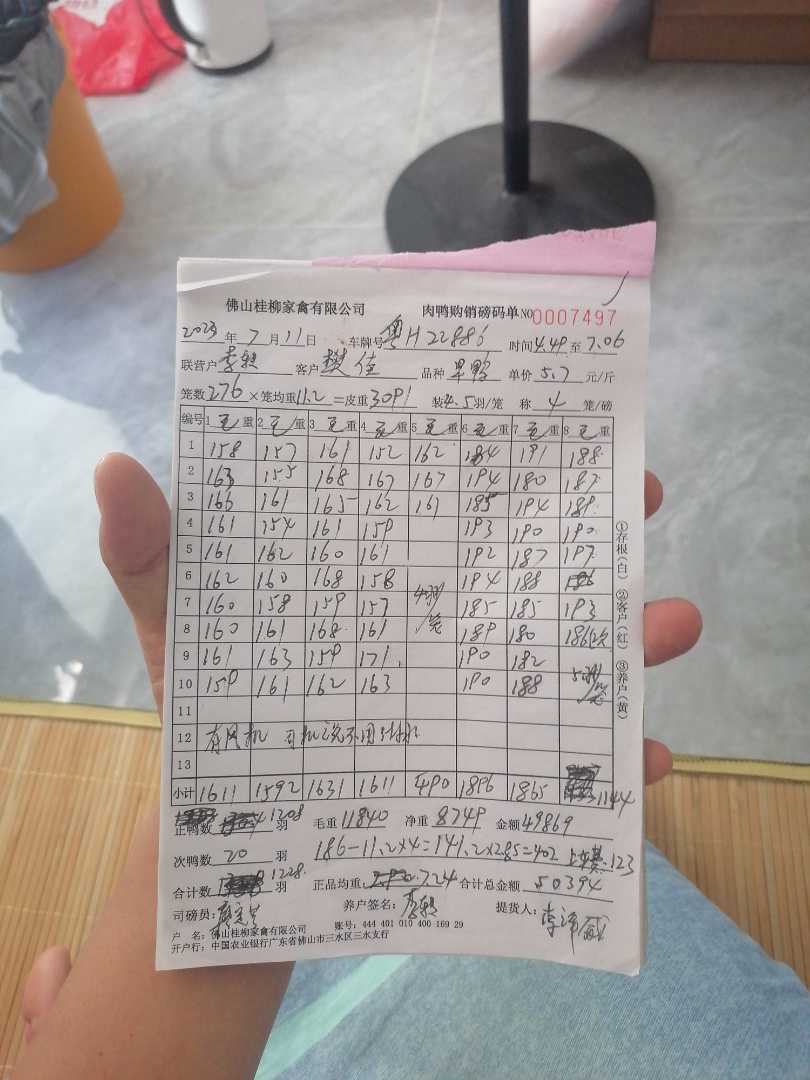 佛山桂柳家禽有限公司 肉鸭购销磅码单 NO 0007497
2023年7月11日 车牌号 粤H22886 时间4.49至7.06
联营户 客户 樊佳 品种 旱鸭 单价 5.7 元/斤
笼数276×笼均重11.2=皮重3091 装4.5羽/笼 称 4 笼/磅
编号 1毛重 2毛重 3毛重 4毛重 5毛重 6毛重 7毛重 8毛重
1 158 157 161 152 162 184 191 188
2 163 155 168 167 167 194 180 187
3 166 161 165 162 161 185 194 189
4 161 154 161 159 193 190 190
5 161 162 160 161 192 187 197
6 162 160 168 158 194 188
7 160 158 159 157 4羽/笼 185 185 193
8 160 161 168 161 189 180 186次
9 161 163 159 171 190 182
10 159 161 162 163 190 188 5羽/笼
11
12 有风机 司机说不用
13
小计 1611 1592 1631 1611 490 1896 1865 1144
正鸭数 1208 羽 毛重11840 净重8749 金额49869
次鸭数 20 羽 186-11.2×4=141.2×2.85=402 上车费.123
合计数 1228 羽 正品均重: 7.24 合计总金额 50394
司磅员: 养户签名: 提货人:
户 名: 佛山桂柳家禽有限公司 账号: 444 401 010 400 169 29
开户行: 中国农业银行广东省佛山市三水区三水支行
①存根(白) ②客户(红) ③养户(黄)